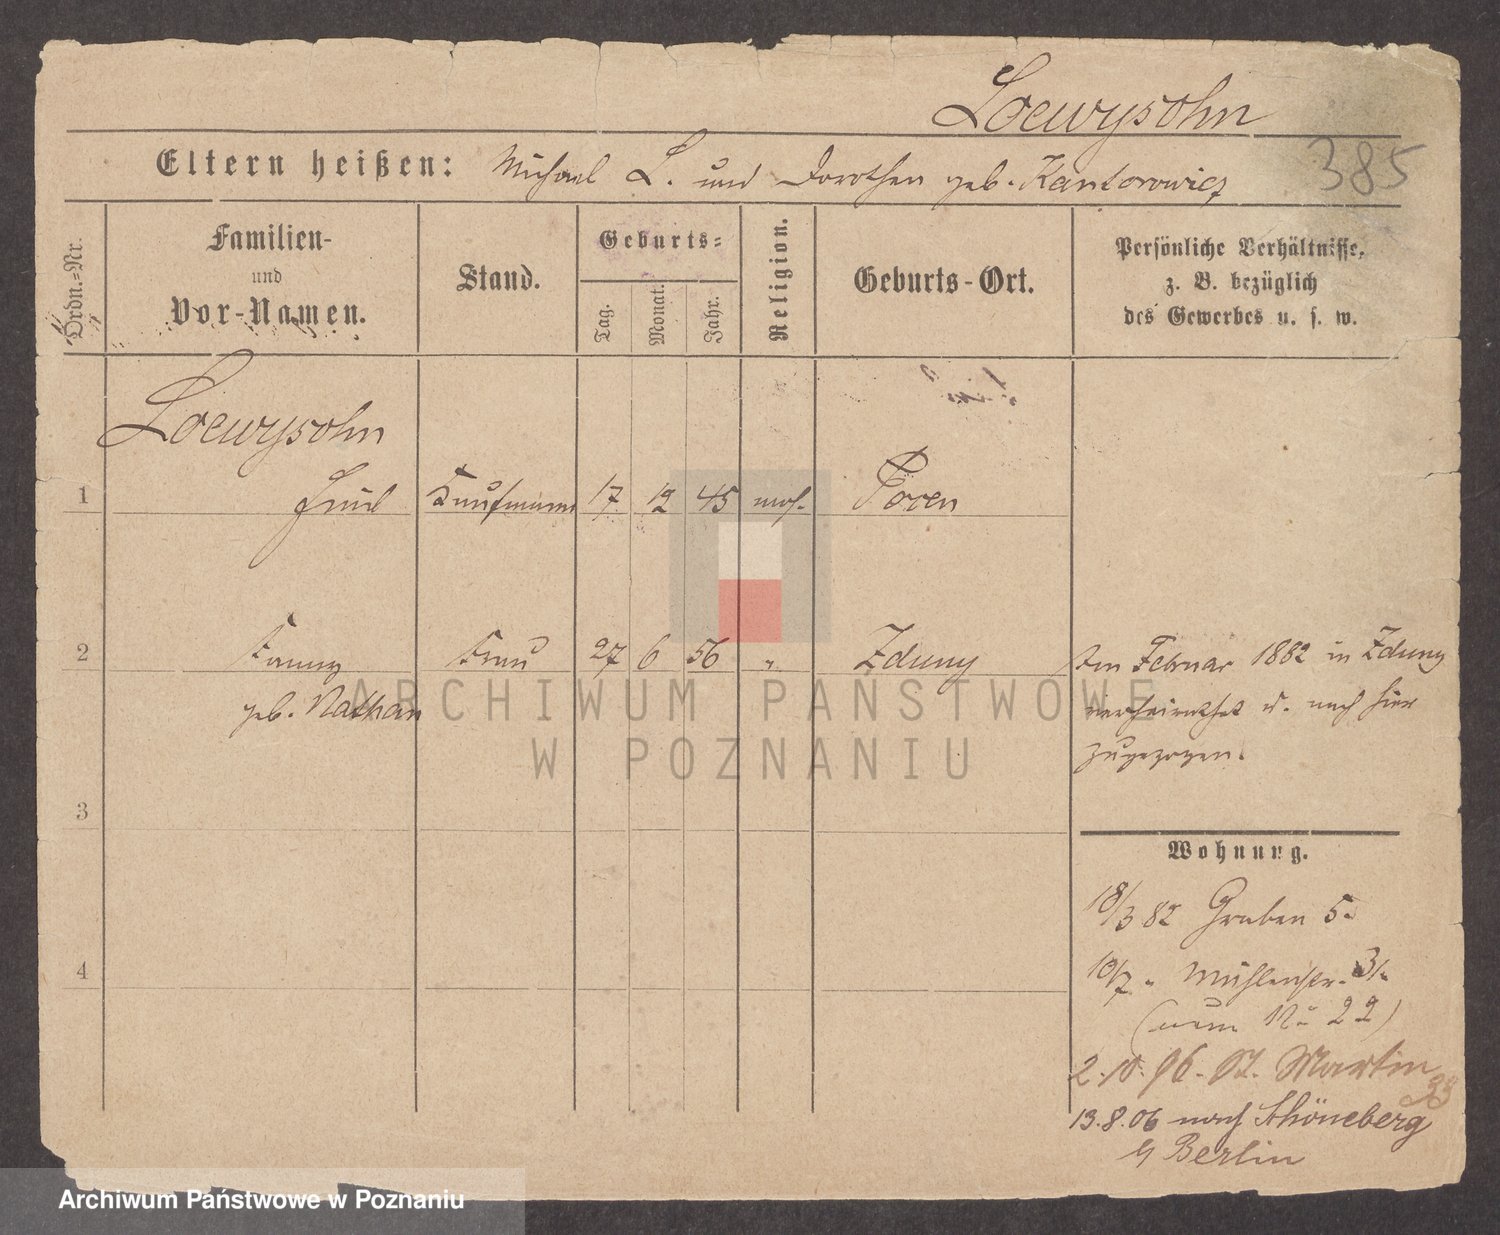 Loewysohn
385
Eltern heißen: Michael L. und Dorothea geb. Kantorowicz
Ordn.-Nr.
Familien-
und
Vor-Namen.
Stand.
Geburts-
Tag.
Monat.
Jahr.
Religion.
Geburts-Ort.
Persönliche Verhältnisse,
z. B. bezüglich
des Gewerbes u. s. w.
Loewysohn
1 Emil Kaufmann 17 12 45 mos. Posen
2 Fanny Frau 27 6 56 " Zduny
geb. Nathan
Im Februar 1882 in Zduny
verheirathet u. nach hier
zugezogen.
3
4
Wohnung.
18/3 82 Graben 5.
10/7 " Mühlenstr. 31.
(neue No 22)
2.10.96. St. Martin
23
13.8.06 nach Schöneberg
b/ Berlin
ARCHIWUM PAŃSTWOWE
W POZNANIU
Archiwum Państwowe w Poznaniu